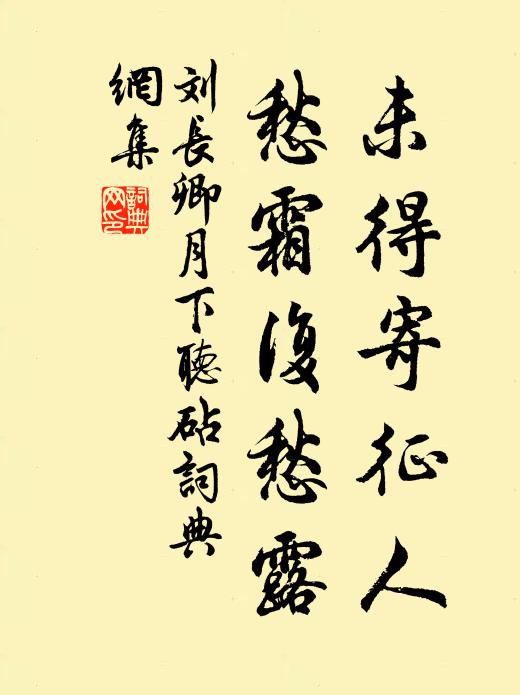 未得寄征人
愁霜復愁露
刘長卿月下聽砧詞典
網集
詞典
网印